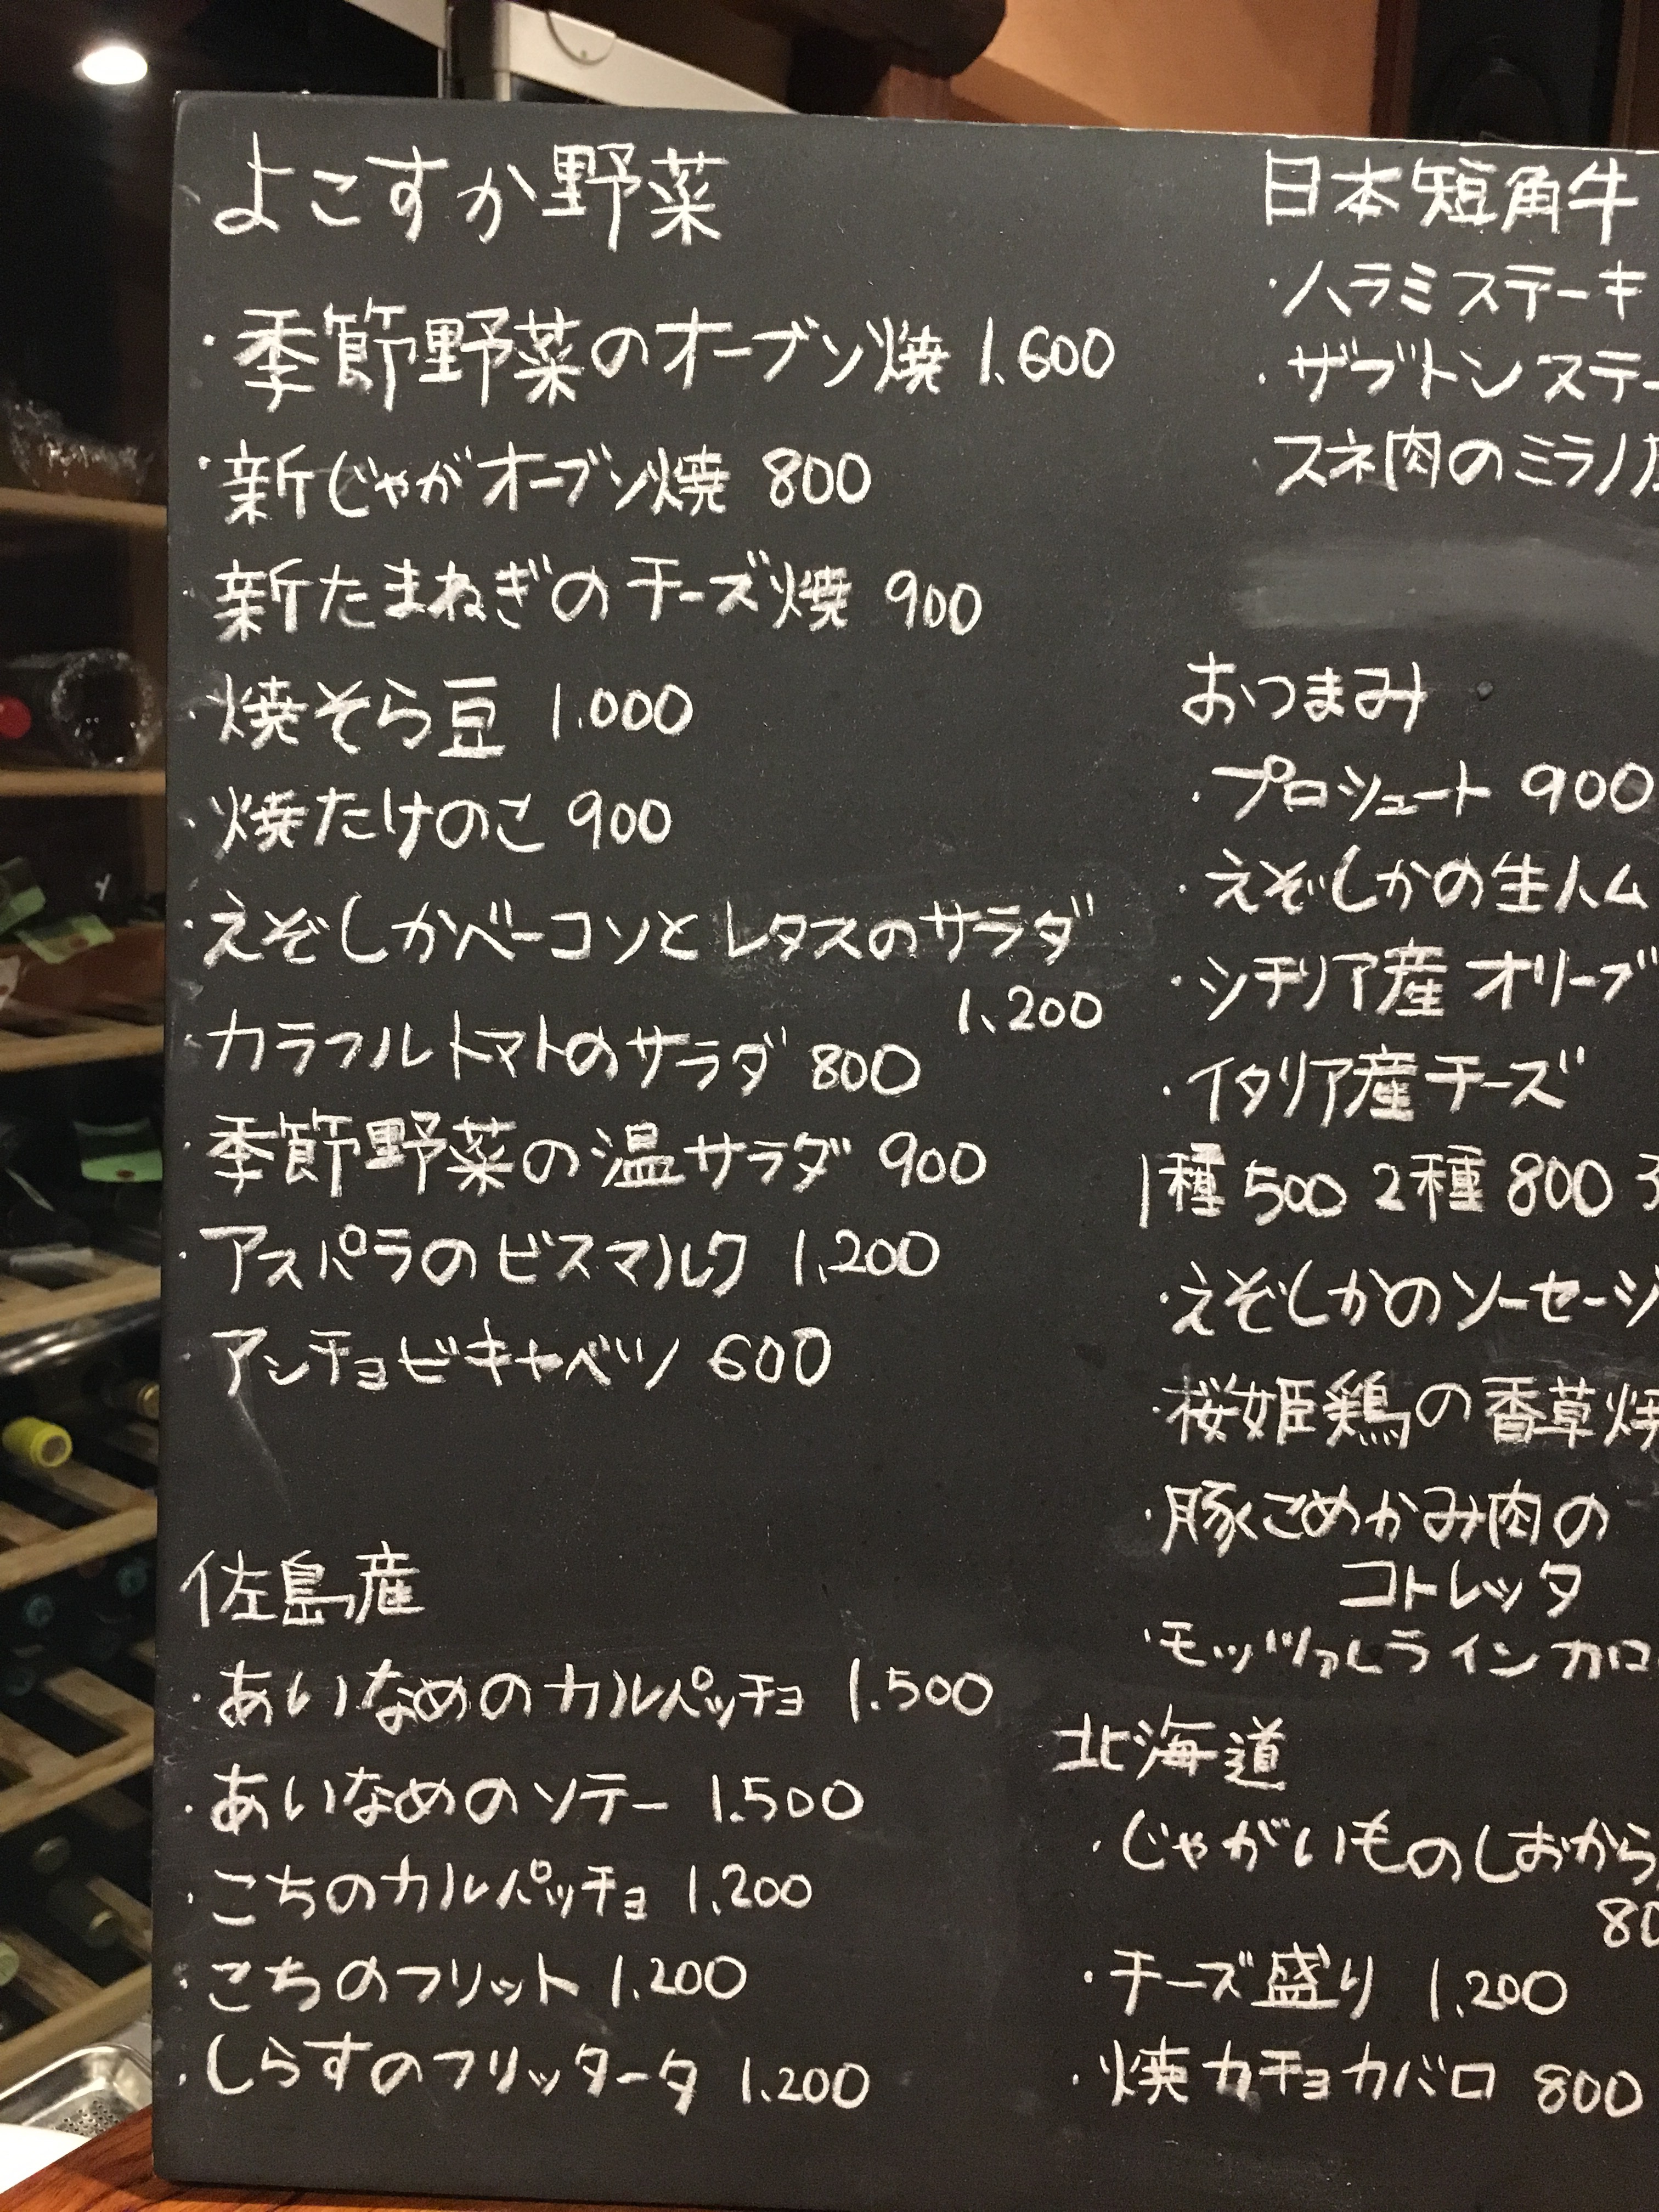 よこすか野菜
・季節野菜のオーブン焼 1.600
・新じゃがオーブン焼 800
・新たまねぎのチーズ焼 900
・焼そら豆 1.000
・焼たけのこ 900
・えぞしかベーコンとレタスのサラダ
1.200
・カラフルトマトのサラダ 800
・季節野菜の温サラダ 900
・アスパラのビスマルク 1.200
・アンチョビキャベツ 600
佐島産
・あいなめのカルパッチョ 1.500
・あいなめのソテー 1.500
・こちのカルパッチョ 1.200
・こちのフリット 1.200
・しらすのフリッタータ 1.200
日本短角牛
・ハラミステーキ
・ザブトンステー
スネ肉のミラノ
おつまみ
・プロシュート 900
・えぞしかの生ハム
・シチリア産オリーブ
・イタリア産チーズ
1種 500 2種 800 3
・えぞしかのソーセージ
・桜姫鶏の香草焼
・豚こめかみ肉の
コトレッタ
・モッツァレラインカロ
北海道
・じゃがいものしおから
80
・チーズ盛り 1.200
・焼カチョカバロ 800